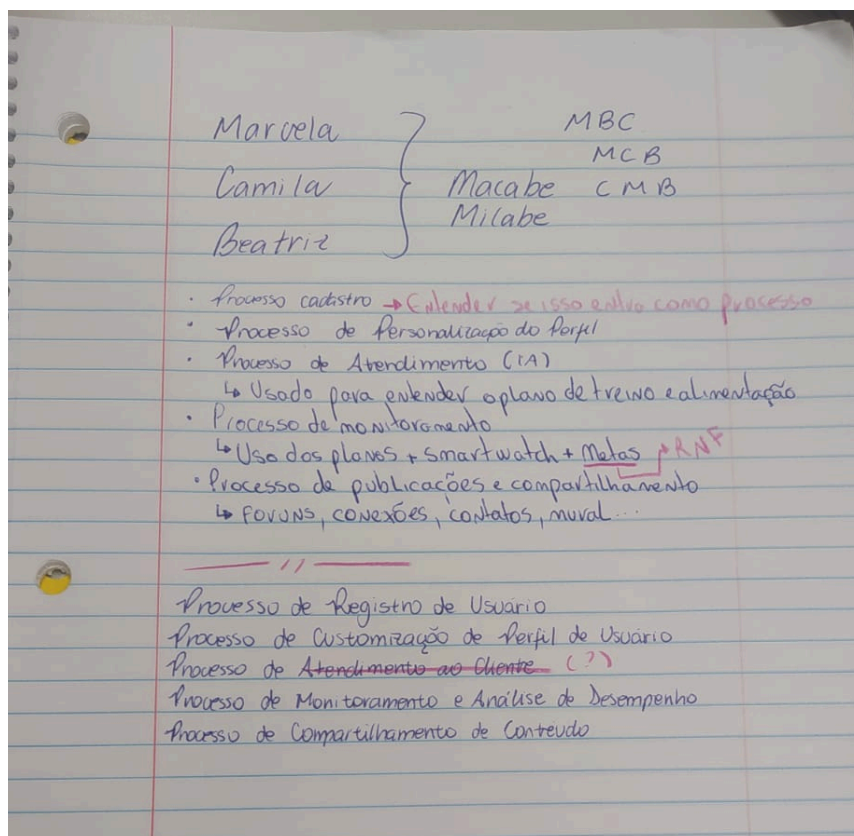 Marcela } MBC
MCB
Camila Macabe CMB
Milabe
Beatriz
· Processo cadastro → Entender se isso entra como processo
· Processo de Personalização do Perfil
· Processo de Atendimento (IA)
↳ Usado para entender o plano de treino e alimentação
· Processo de monitoramento
↳ Uso dos planos + Smartwatch + Metas → RNF
· Processo de publicações e compartilhamento
↳ FORUNS, CONEXÕES, contatos, mural...
— // —
Processo de Registro de Usuário
Processo de Customização de Perfil de Usuário
Processo de Atendimento ao Cliente (?)
Processo de Monitoramento e Análise de Desempenho
Processo de Compartilhamento de Conteudo